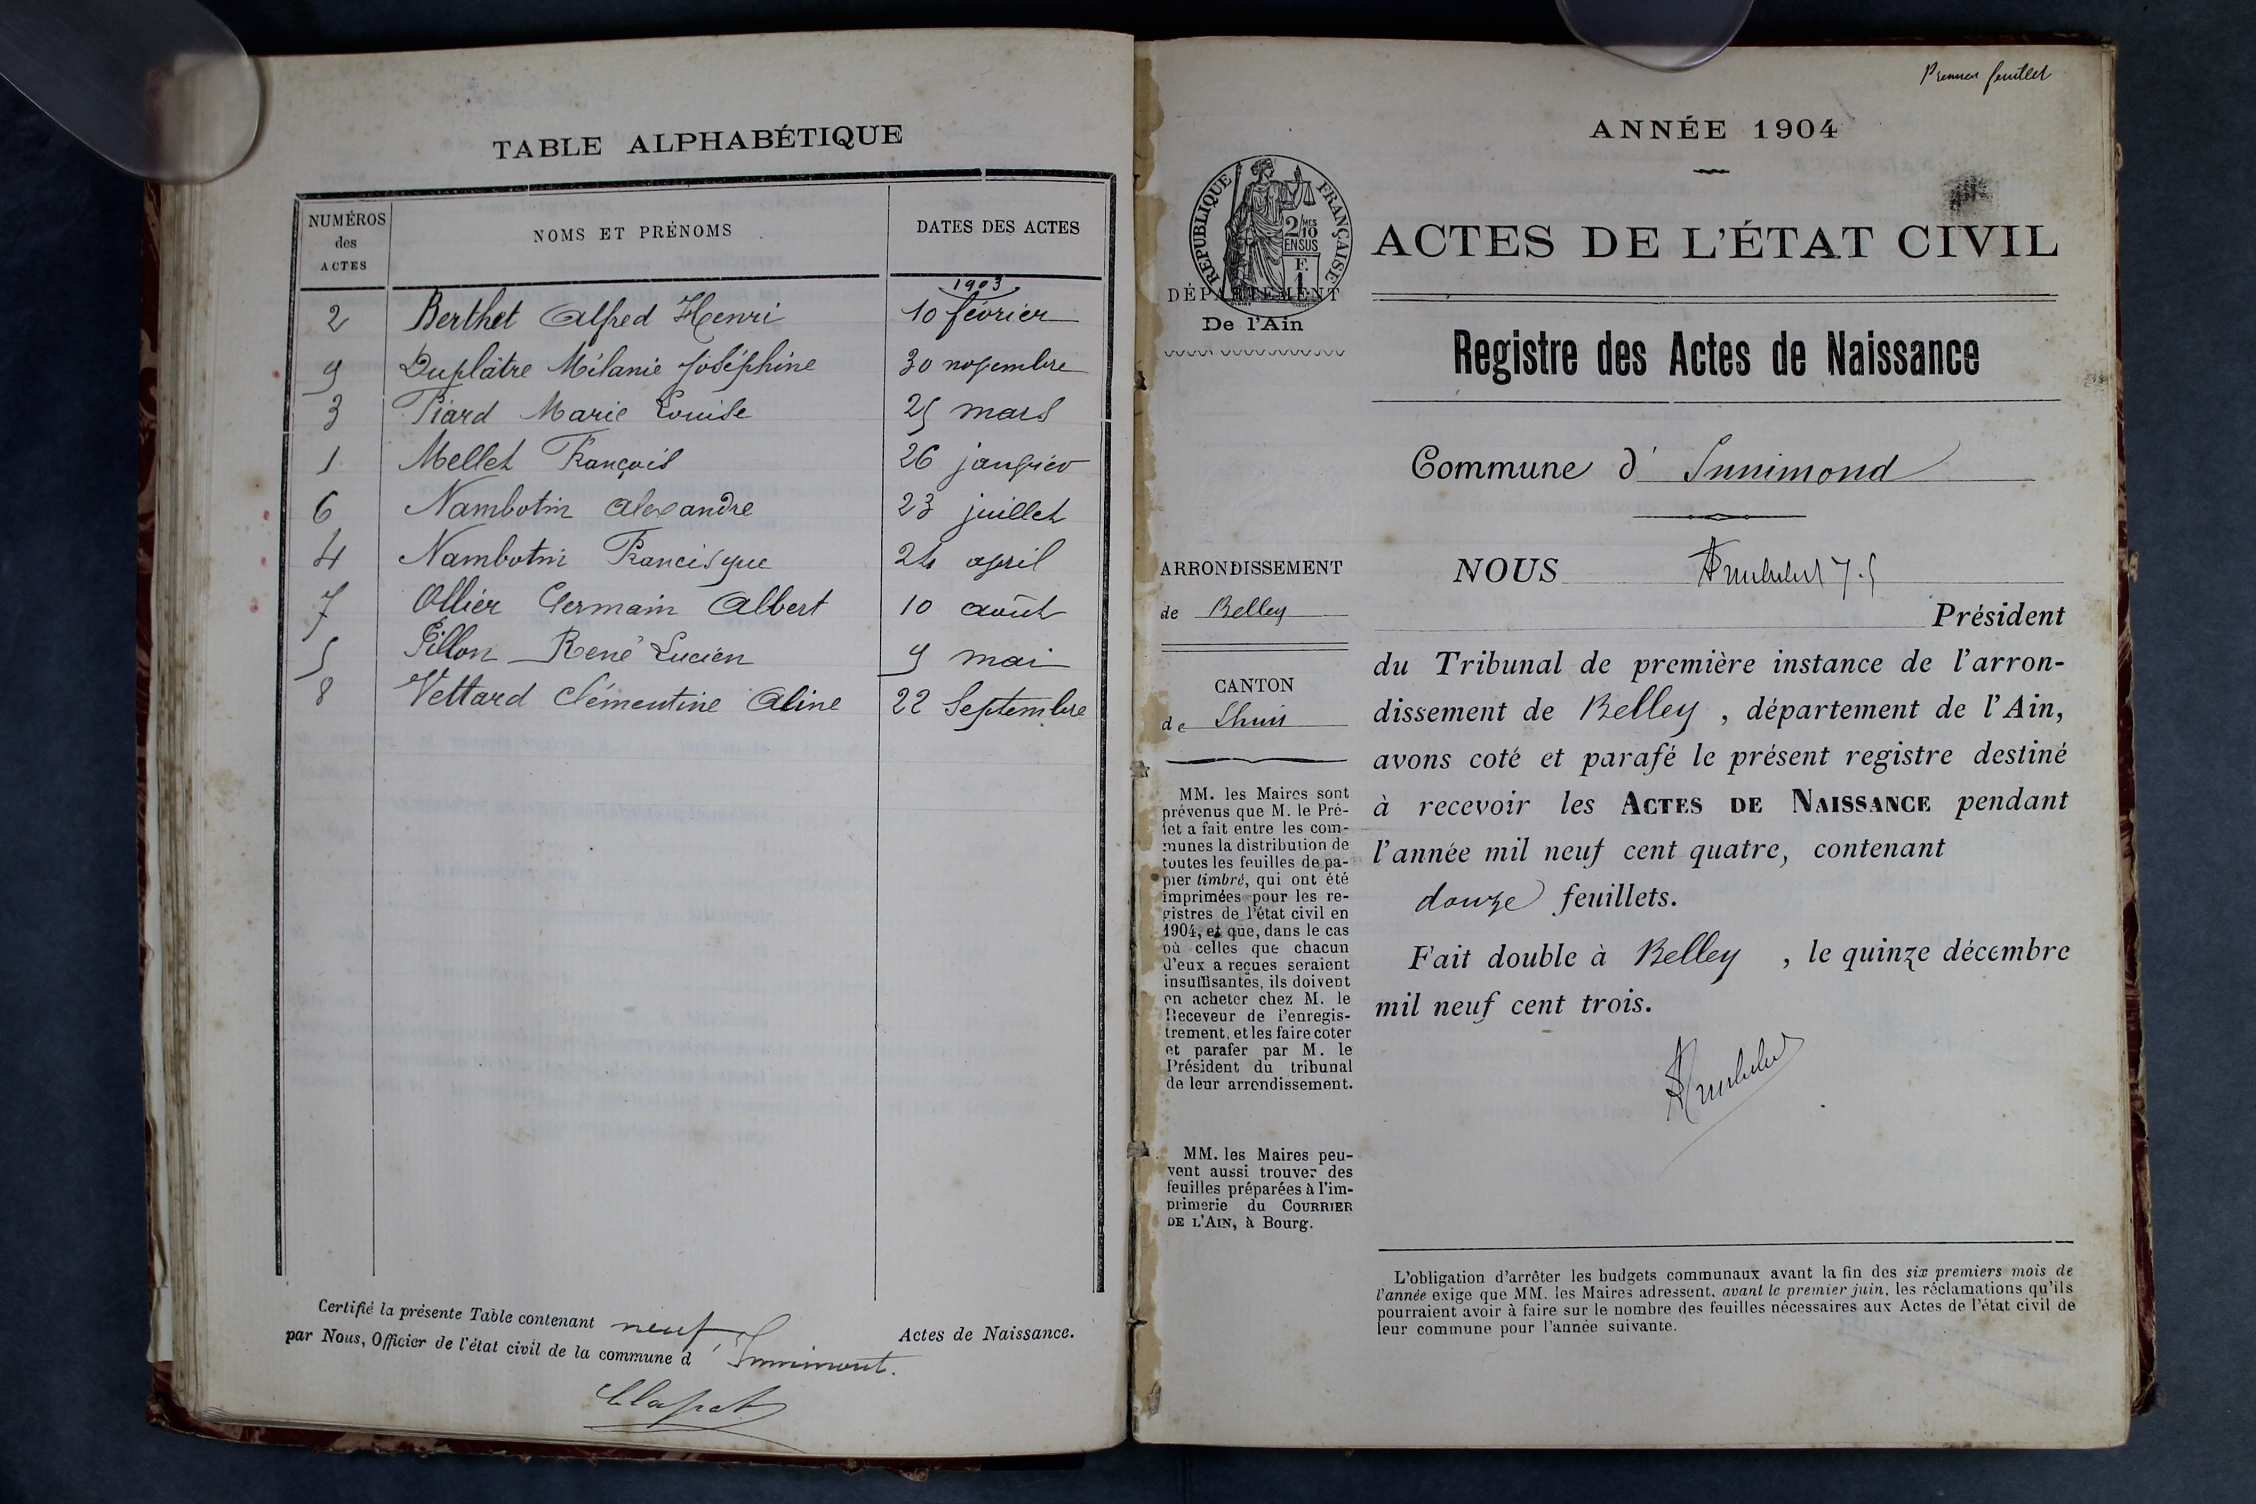 TABLE ALPHABÉTIQUE
NUMÉROS
des
ACTES
NOMS ET PRÉNOMS
DATES DES ACTES
1903
2 Berthet Alfred Henri 10 février
9 Duplâtre Mélanie Joséphine 30 novembre
3 Piard Marie Louise 25 mars
1 Mellet François 26 janvier
6 Nambotin Alexandre 23 juillet
4 Nambotin Francisque 24 avril
7 Ollier Germain Albert 10 août
5 Pillon René Lucien 9 mai
8 Vettard Clémentine Aline 22 Septembre
Certifié la présente Table contenant neuf Actes de Naissance.
par Nous, Officier de l'état civil de la commune d'Innimont.
Premier feuillet
ANNÉE 1904
RÉPUBLIQUE FRANÇAISE
2/10 MES
EN SUS
F.
1
DÉPARTEMENT
De l'Ain
ACTES DE L'ÉTAT CIVIL
Registre des Actes de Naissance
Commune d' Innimond
ARRONDISSEMENT
de Belley
CANTON
de Lhuis
MM. les Maires sont
prévenus que M. le Pré-
fet a fait entre les com-
munes la distribution de
toutes les feuilles de pa-
pier timbré, qui ont été
imprimées pour les re-
gistres de l'état civil en
1904, et que, dans le cas
où celles que chacun
d'eux a reçues seraient
insuffisantes, ils doivent
en acheter chez M. le
Receveur de l'enregis-
trement, et les faire coter
et parafer par M. le
Président du tribunal
de leur arrondissement.
MM. les Maires peu-
vent aussi trouver des
feuilles préparées à l'im-
primerie du COURRIER
DE L'AIN, à Bourg.
NOUS
Président
du Tribunal de première instance de l'arron-
dissement de Belley, département de l'Ain,
avons coté et parafé le présent registre destiné
à recevoir les ACTES DE NAISSANCE pendant
l'année mil neuf cent quatre, contenant
douze feuillets.
Fait double à Belley, le quinze décembre
mil neuf cent trois.
L'obligation d'arrêter les budgets communaux avant la fin des six premiers mois de
l'année exige que MM. les Maires adressent, avant le premier juin, les réclamations qu'ils
pourraient avoir à faire sur le nombre des feuilles nécessaires aux Actes de l'état civil de
leur commune pour l'année suivante.